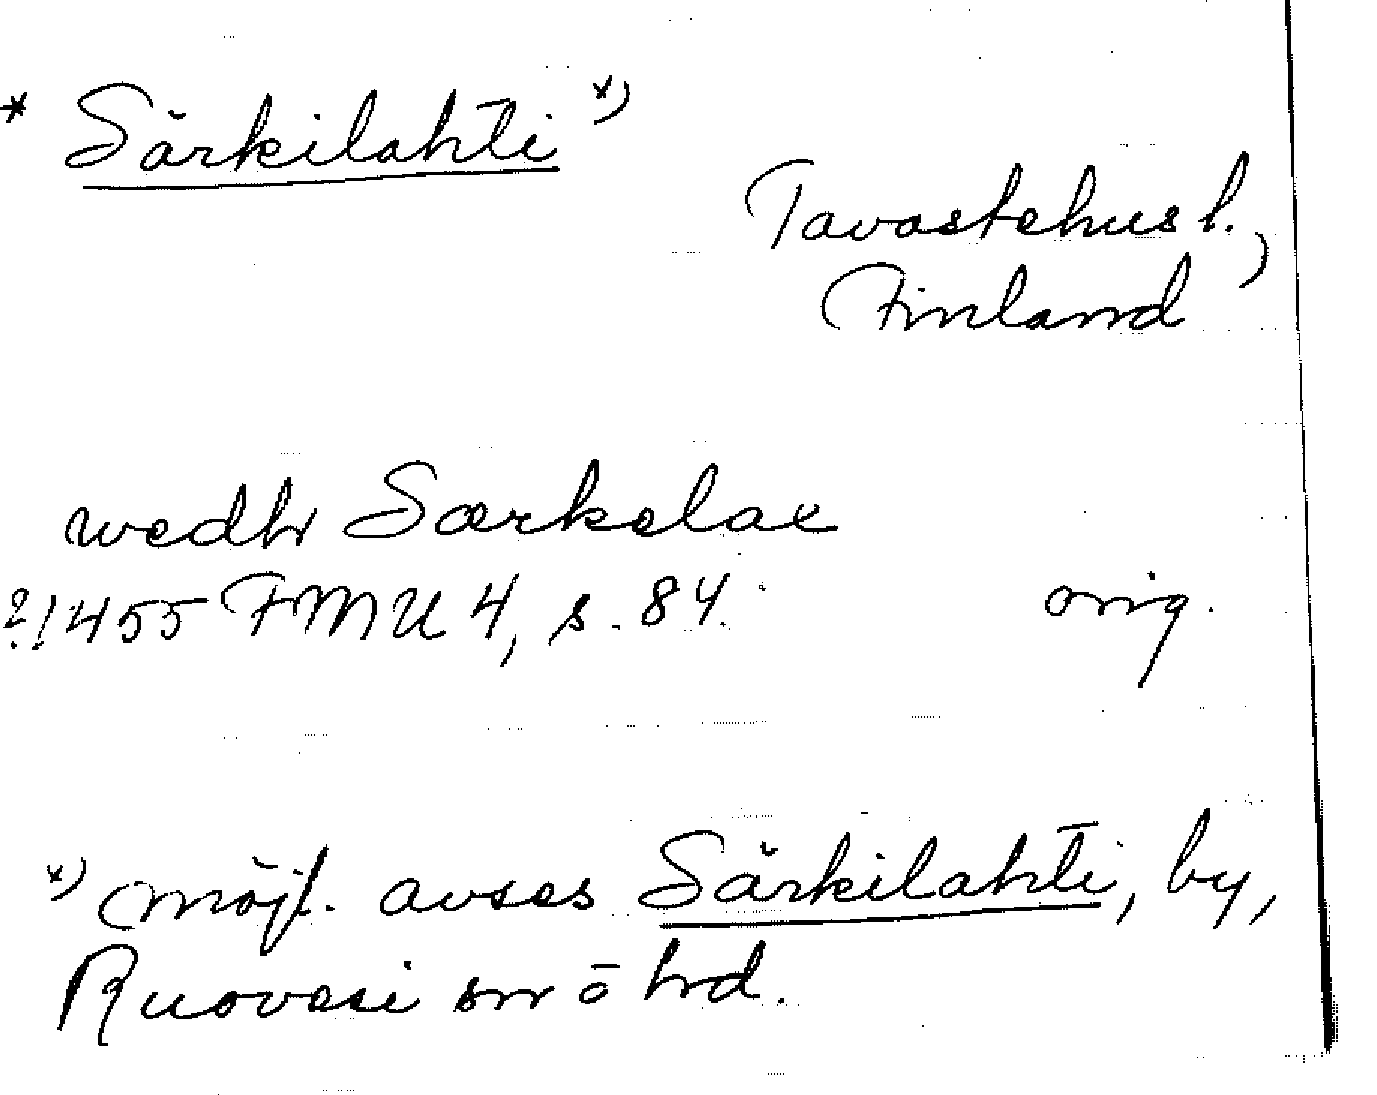 * Särkilahti *)
Tavastehus l.,
Finland
wedhr Særkelax
?1455 FMU 4, s. 84.
orig.
*) möjl. avses Särkilahti, by,
Ruovesi sn o hd.